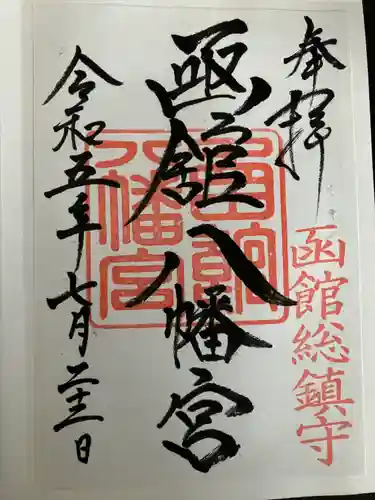 奉拝
函館総鎮守
函館八幡宮
函館八幡宮
令和五年七月二十三日